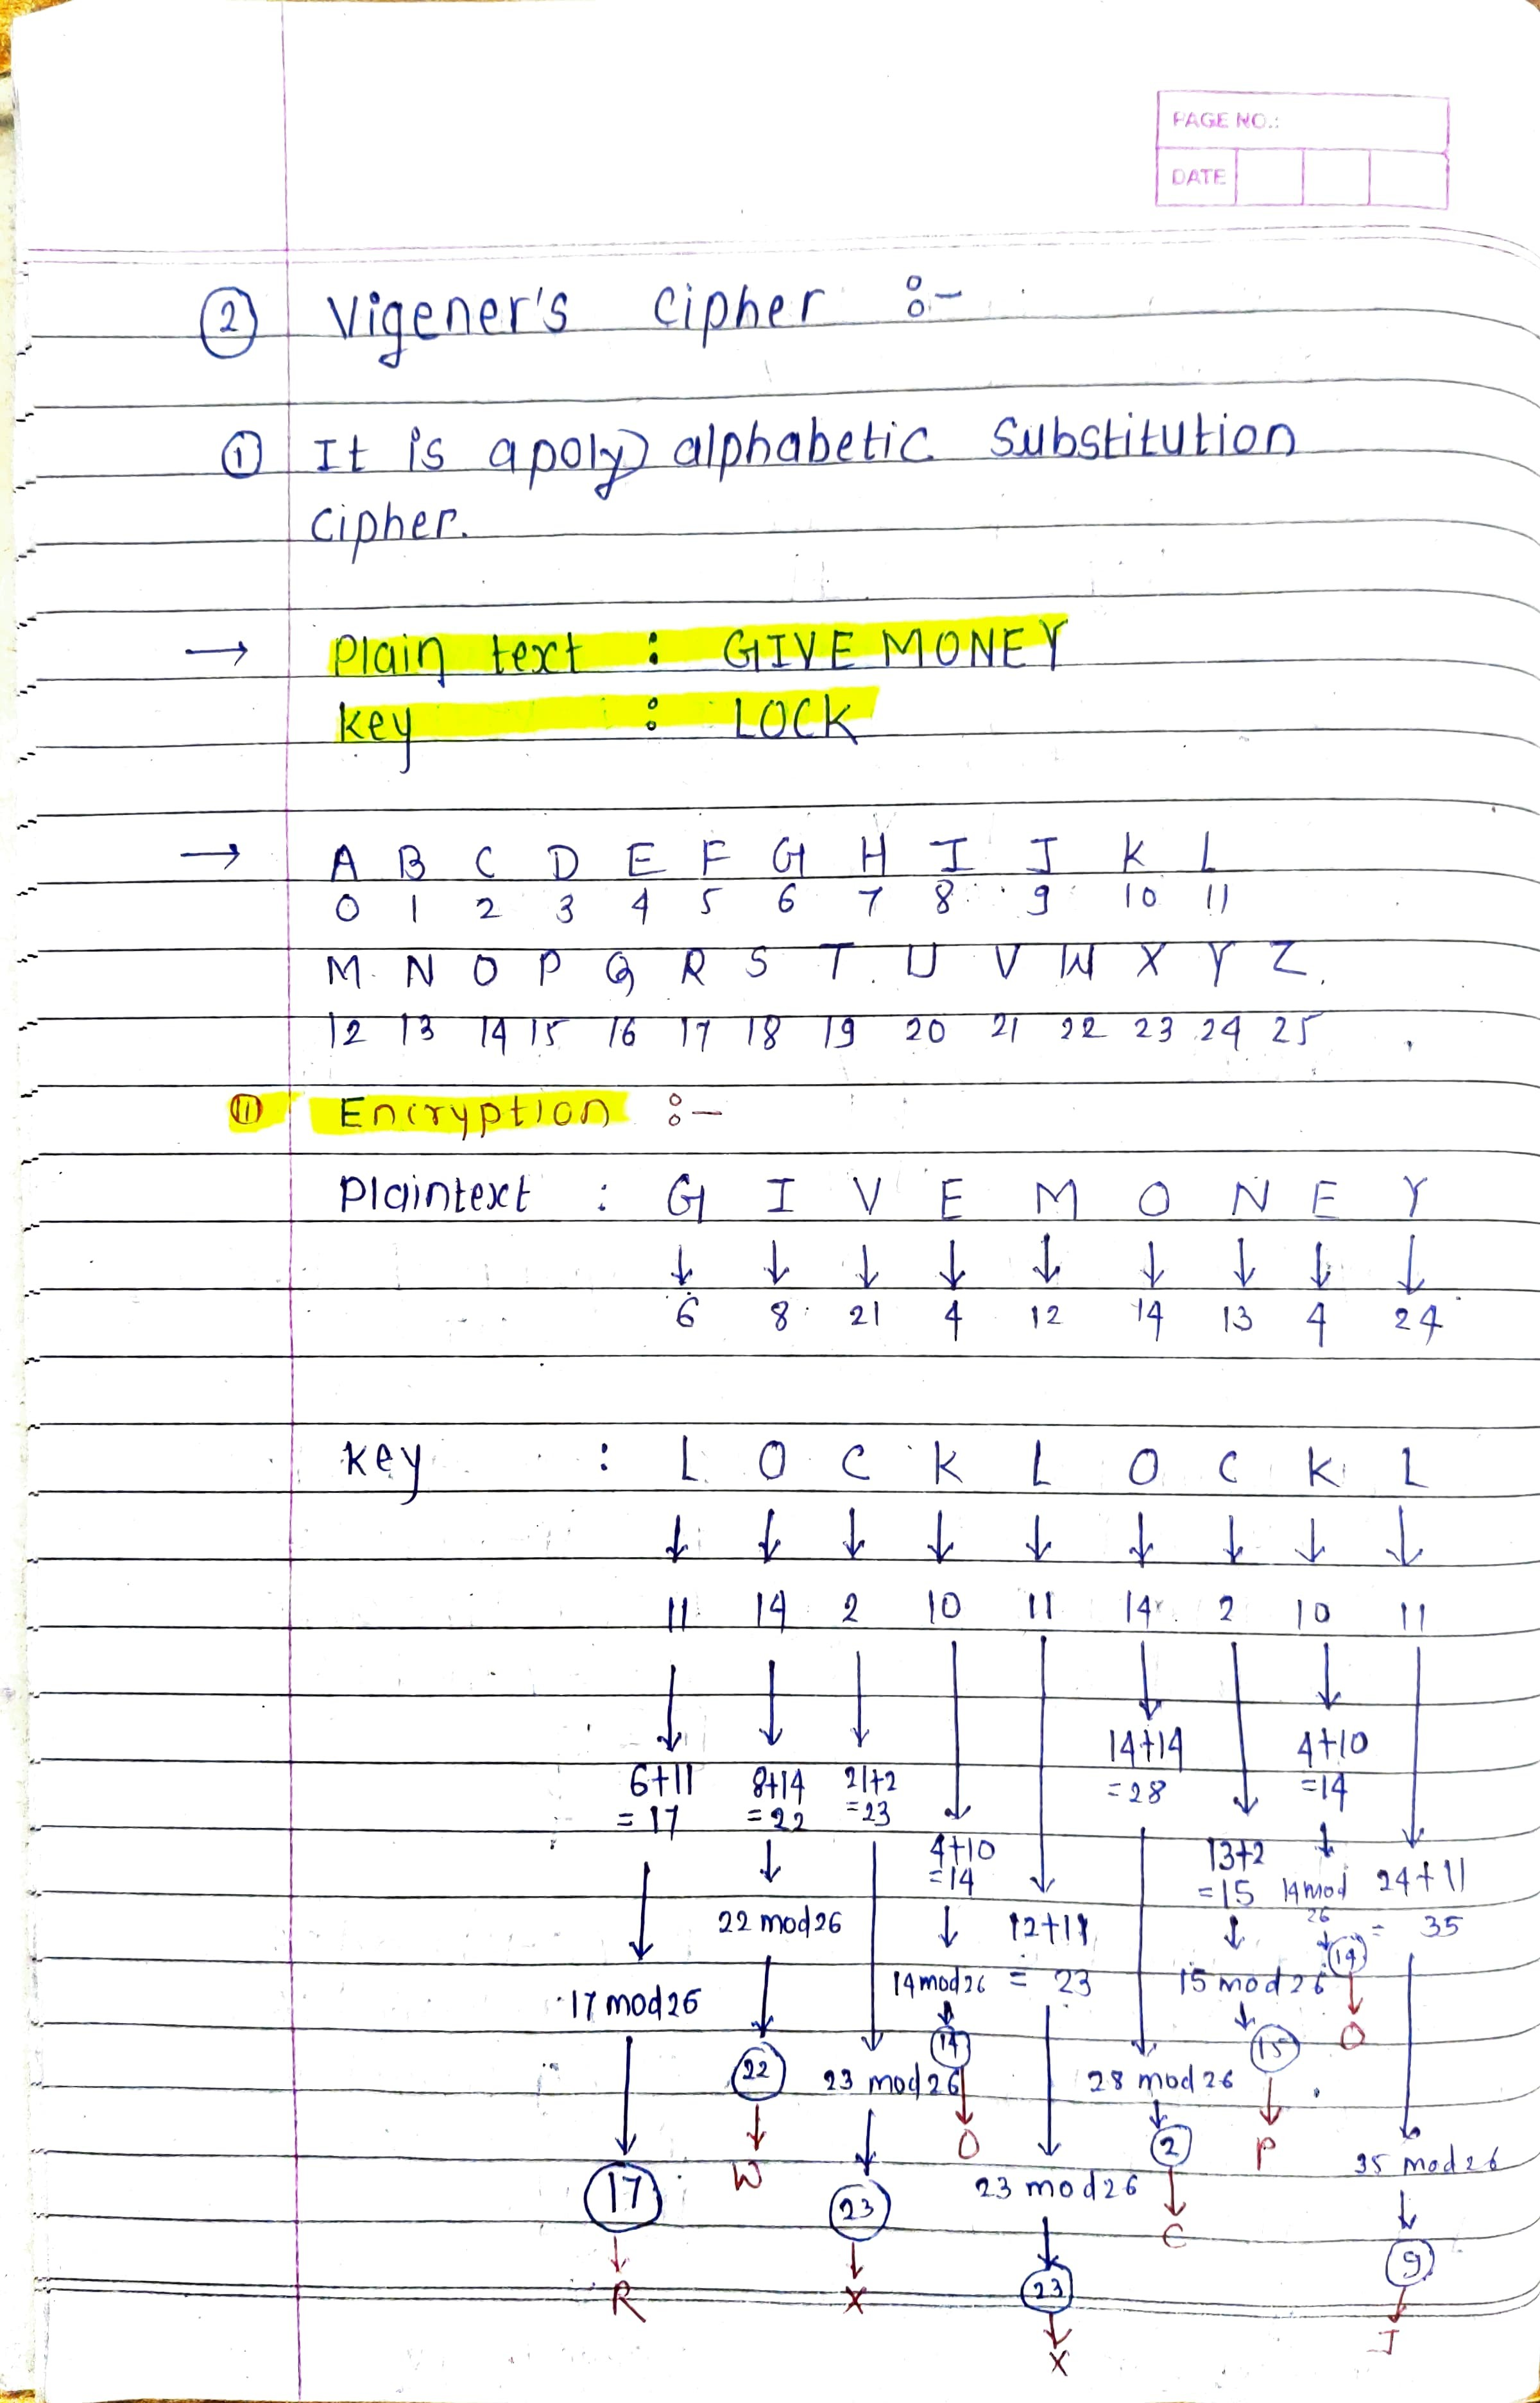 PAGE NO.:
DATE
2 Vigener's cipher :-
1 It is a poly alphabetic Substitution
cipher.
→ Plain text : GIVE MONEY
key : LOCK
→ A B C D E F G H I J K L
0 1 2 3 4 5 6 7 8 9 10 11
M N O P Q R S T U V W X Y Z
12 13 14 15 16 17 18 19 20 21 22 23 24 25
11 Encryption :-
Plaintext : G I V E M O N E Y
↓ ↓ ↓ ↓ ↓ ↓ ↓ ↓ ↓
6 8 21 4 12 14 13 4 24
key : L O C K L O C K L
↓ ↓ ↓ ↓ ↓ ↓ ↓ ↓ ↓
11 14 2 10 11 14 2 10 11
14+14 4+10
6+11 8+14 21+2 =28 =14
=17 =22 =23
4+10 13+2 24+11
=14 =15 14 mod
22 mod 26 12+11 26 = 35
14 mod 26 = 23 15 mod 26 14
17 mod 26 14 15 O
22 23 mod 26 28 mod 26
W O 2 P 35 mod 26
17 23 23 mod 26 C
R X 23 9
X J